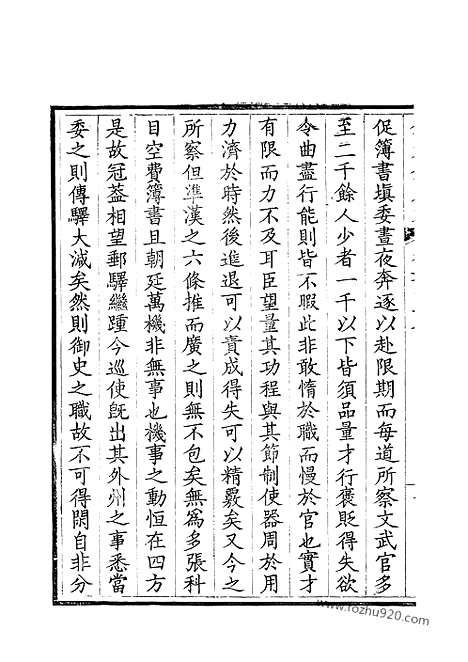 促簿書填委晝夜奔逐以赴限期而每道所察文武官多
至二千餘人少者一千以下皆須品量才行褒貶得失欲
令曲盡行能則皆不暇此非敢惰於職而慢於官也實才
有限而力不及耳臣望量其功程與其節制使器周於用
力濟於時然後進退可以責成得失可以精覈矣又今之
所察但準漢之六條推而廣之則無不包矣無為多張科
目空費簿書且朝廷萬機非無事也機事之動恒在四方
是故冠葢相望郵驛繼踵今巡使旣出其外州之事悉當
委之則傳驛大減矣然則御史之職故不可得閑自非分
www.fozhu920.com